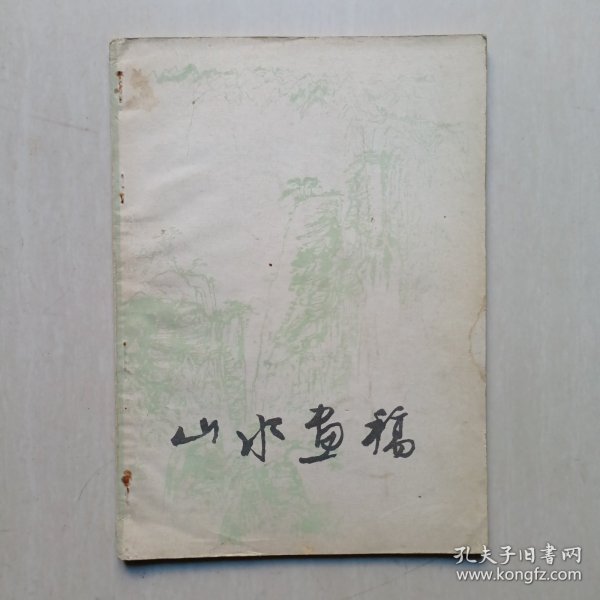 山水画稿
孔夫子旧書网
www.kongfz.com